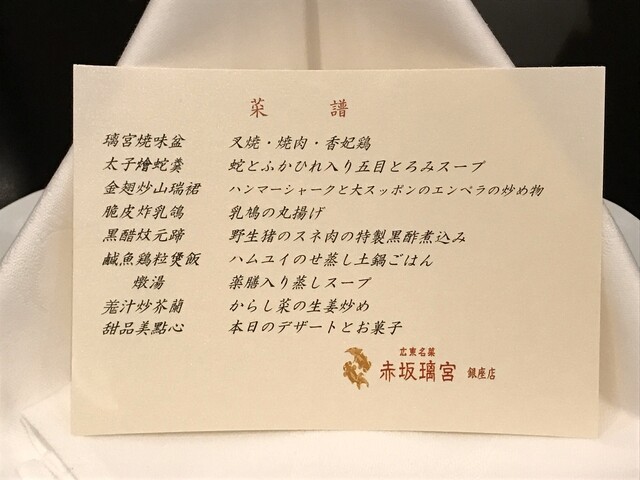 菜譜
璃宮焼味盆 叉焼・焼肉・香妃鶏
太子燴蛇羹 蛇とふかひれ入り五目とろみスープ
金翅炒山瑞裙 ハンマーシャークと大スッポンのエンペラの炒め物
脆皮炸乳鴿 乳鳩の丸揚げ
黒醋炆元蹄 野生猪のスネ肉の特製黒酢煮込み
鹹魚鶏粒煲飯 ハムユイのせ蒸し土鍋ごはん
燉湯 薬膳入り蒸しスープ
羗汁炒芥蘭 からし菜の生姜炒め
甜品美點心 本日のデザートとお菓子
広東名菜
赤坂璃宮 銀座店